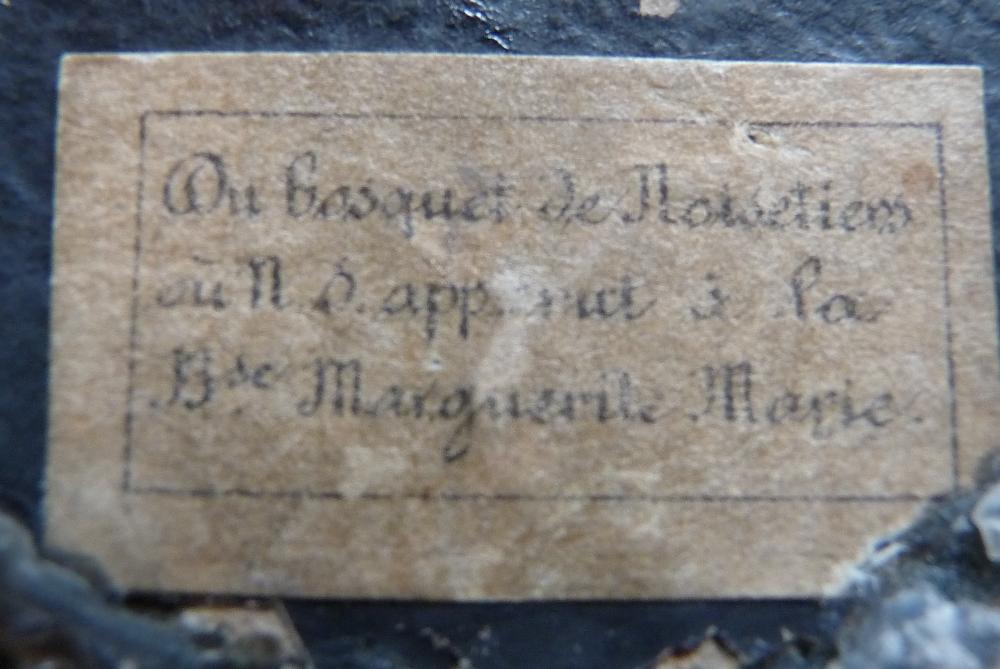 Du bosquet de Noisetiers
où N. S. apparut à la
Bse Marguerite Marie.